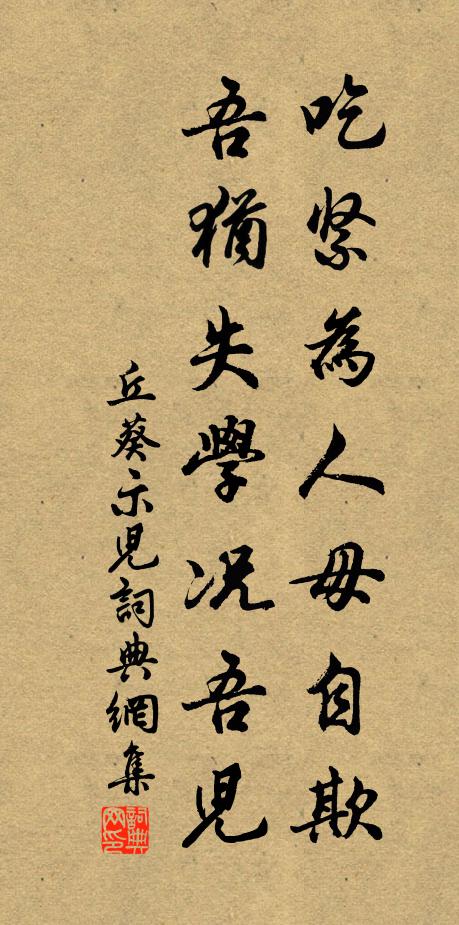 吃緊為人毋自欺
吾猶失學况吾兒
丘葵示兒詞典網集
詞典网印